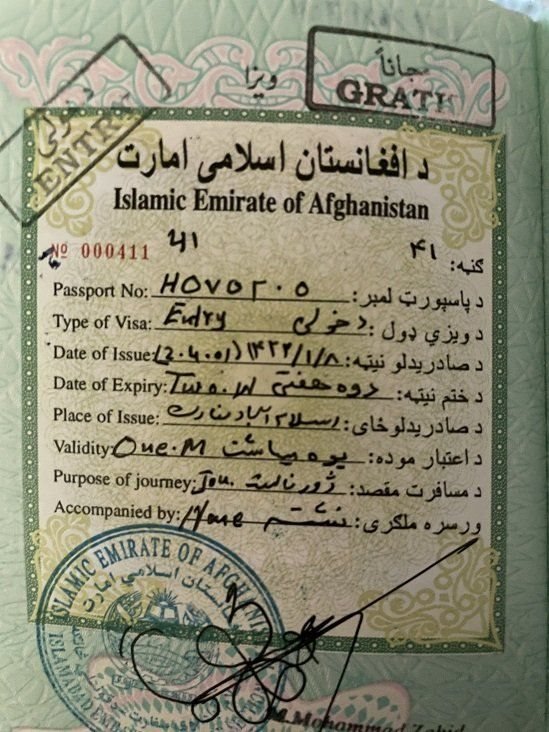 مجاناً
GRATI
ویزا
دخولی
ENTRY
د افغانستان اسلامی امارت
Islamic Emirate of Afghanistan
№ 000411 41 ۴۱ گڼه:
Passport No: د پاسپورټ لمبر:
Type of Visa: Entry دخولی د ویزې ډول:
Date of Issue: (2.4.01) ۱۴۲۲/۱/۸ د صادریدلو نیټه:
Date of Expiry: Two.w دوه هفتې د ختم نیټه:
Place of Issue: اسلام آباد د صادریدلو ځای:
Validity: One.M یوه میاشت د اعتبار موده:
Purpose of journey: Jou. ژورنالست د مسافرت مقصد:
Accompanied by: None نشته ورسره ملګری:
ISLAMIC EMIRATE OF AFGHANI
افغانستان اسلامی امارت
ISLAMABAD
M.Mohammad Zahid